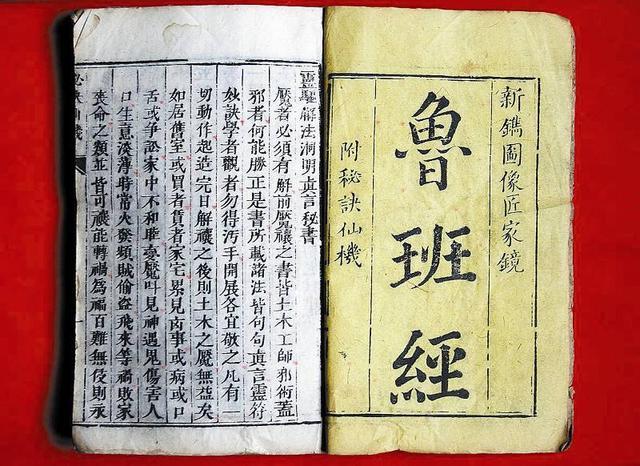 新鐫圖像匠家鏡
魯班經
附秘訣仙機
靈驅解法洞明真言秘書
魘者必須有解前魘禳之書皆土木工師邪術蓋
邪者何能勝正是書所載諸法皆句句真言靈符
妙訣學者觀者勿得污手開展各宜敬之凡有一
切動作起造完日解禳之後則土木之魘無益矣
如居舊室或買者賃者家宅累見凶事或病或口
舌或爭訟家中不和睡夢魘叶見神遇鬼傷害人
口生意淡薄時常火發頻賊偷盜飛來等禍敗家
喪命之類並皆可禳能轉禍爲福百難無侵則永